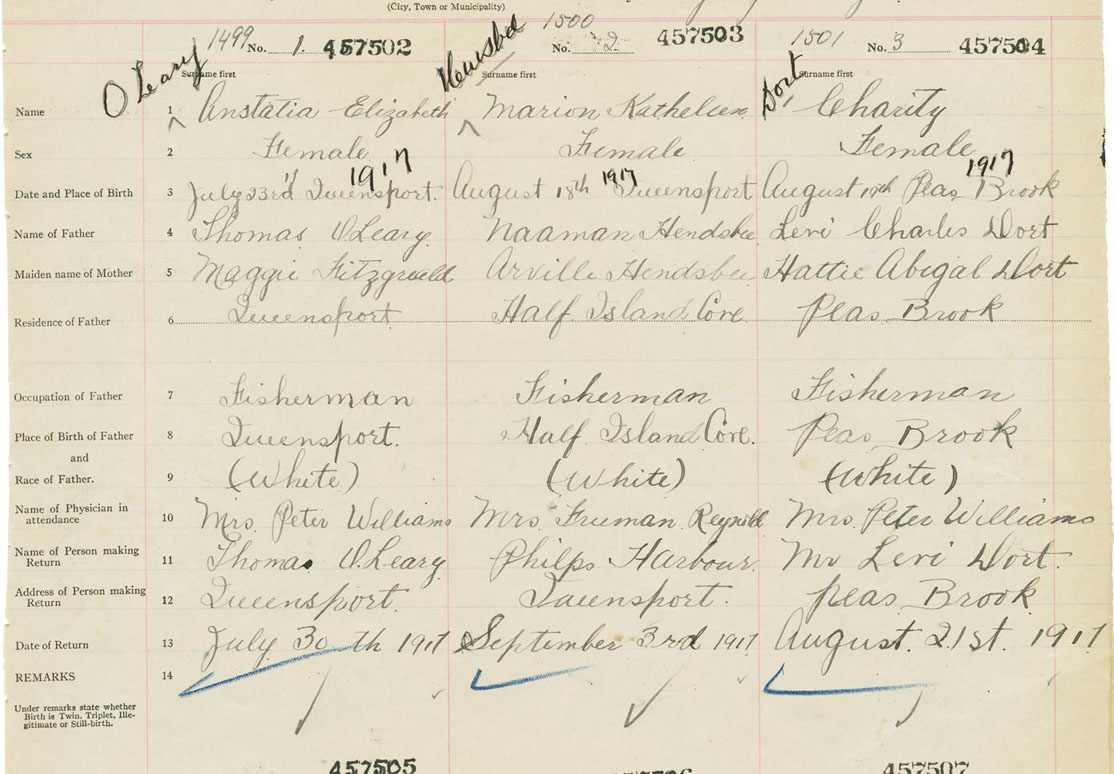 (City, Town or Municipality)
1499 No. 1. 457502 1500 No. 2 457503 1501 No. 3 457504
O'Leary Surname first Hendsbee Surname first Dort Surname first
Name 1 Anstatia Elizabeth Marion Kathelien Charity
Sex 2 Female Female Female
1917 1917 1917
Date and Place of Birth 3 July 23rd Queensport. August 18th Queensport August 19th Peas Brook
Name of Father 4 Thomas O'Leary. Naaman Hendsbee Levi Charles Dort
Maiden name of Mother 5 Maggie Fitzgerald Arville Hendsbee Hattie Abigal Dort
Residence of Father 6 Queensport Half Island Cove. Peas Brook
Occupation of Father 7 Fisherman Fisherman Fisherman
Place of Birth of Father 8 Queensport. Half Island Cove. Peas Brook
and
Race of Father. 9 (White) (White) (White)
Name of Physician in
attendance 10 Mrs. Peter Williams Mrs. Freeman Reynolds Mrs. Peter Williams
Name of Person making
Return 11 Thomas O'Leary. Philps Harbour. Mr Levi Dort.
Address of Person making
Return 12 Queensport. Queensport. Peas Brook
Date of Return 13 July 30th 1917 September 3rd 1917 August. 21st. 1917
REMARKS 14
Under remarks state whether
Birth is Twin, Triplet, Ille-
gitimate or Still-birth.
457505 457507